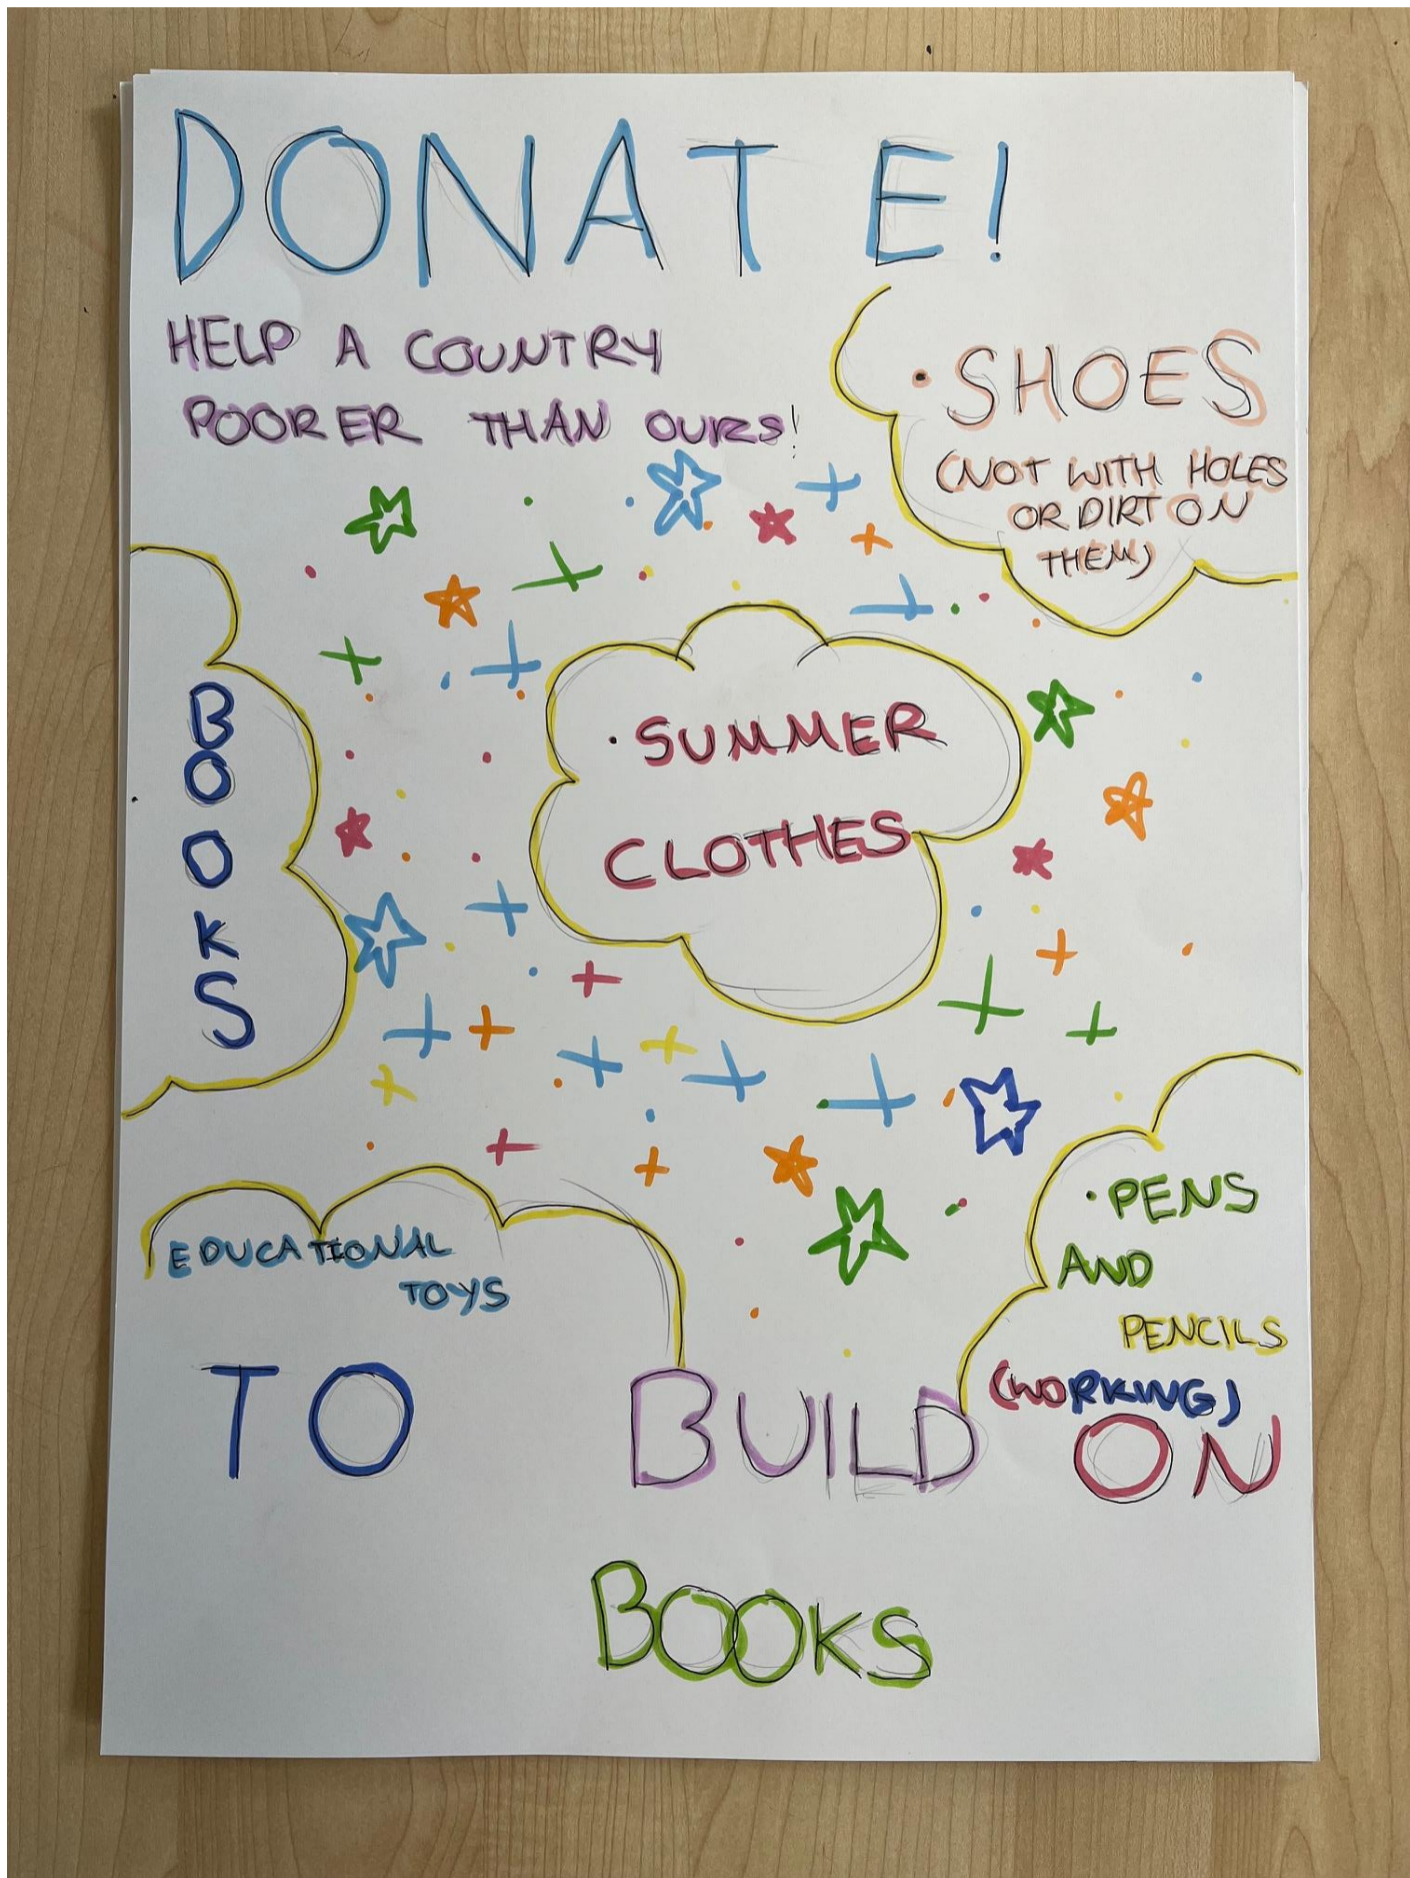 DONATE!
HELP A COUNTRY
POORER THAN OURS!
• SHOES
(NOT WITH HOLES
OR DIRT ON
THEM)
BOOKS
• SUMMER
CLOTHES
EDUCATIONAL
TOYS
• PENS
AND
PENCILS
(WORKING)
TO BUILD ON
BOOKS